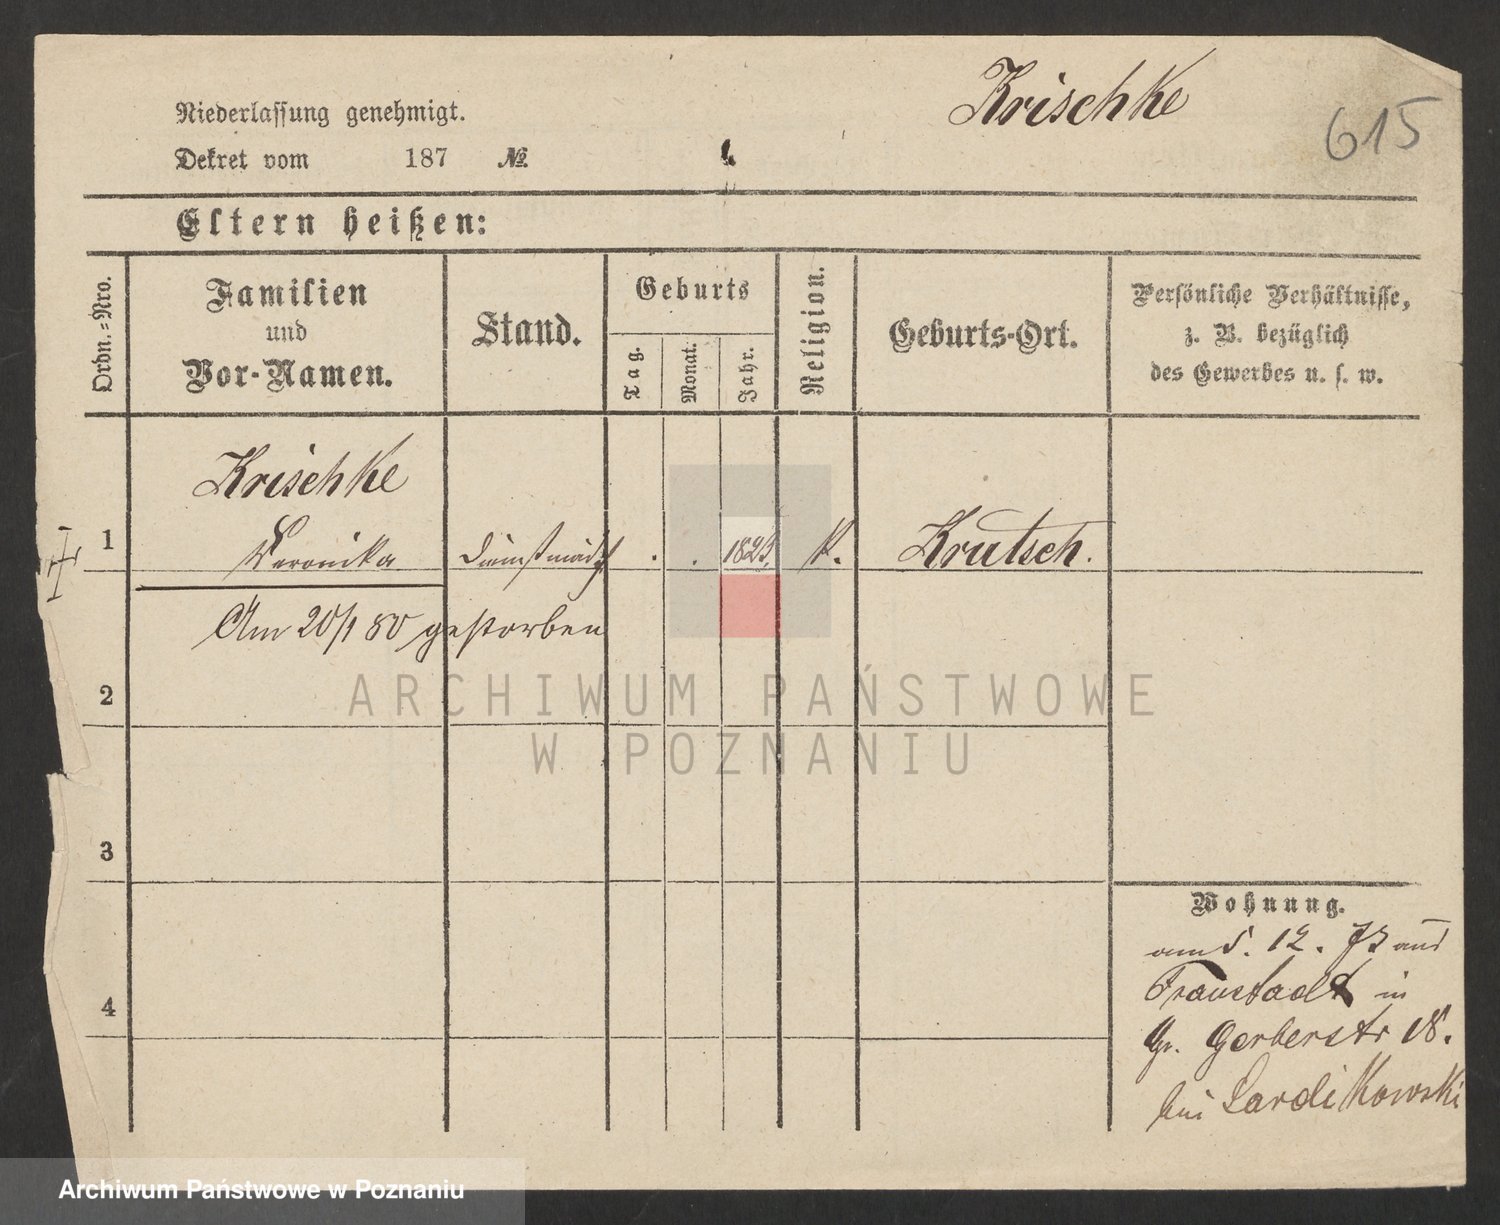 Krischke
615
Niederlassung genehmigt.
Dekret vom 187 №
Eltern heißen:
Ordn.=Nro.
Familien
und
Vor-Namen.
Stand.
Geburts
Tag.
Monat.
Jahr.
Religion.
Geburts-Ort.
Persönliche Verhältnisse,
z. B. bezüglich
des Gewerbes u. s. w.
Krischke
1 Veronika Dienstmädch . . 1825 k. Krutsch.
Am 20/1 80 gestorben
2
3
4
Wohnung.
am 5. 12. 73 aus
Fraustadt in
Gr. Gerberstr 18.
bei Sardikowski
ARCHIWUM PAŃSTWOWE
W POZNANIU
Archiwum Państwowe w Poznaniu